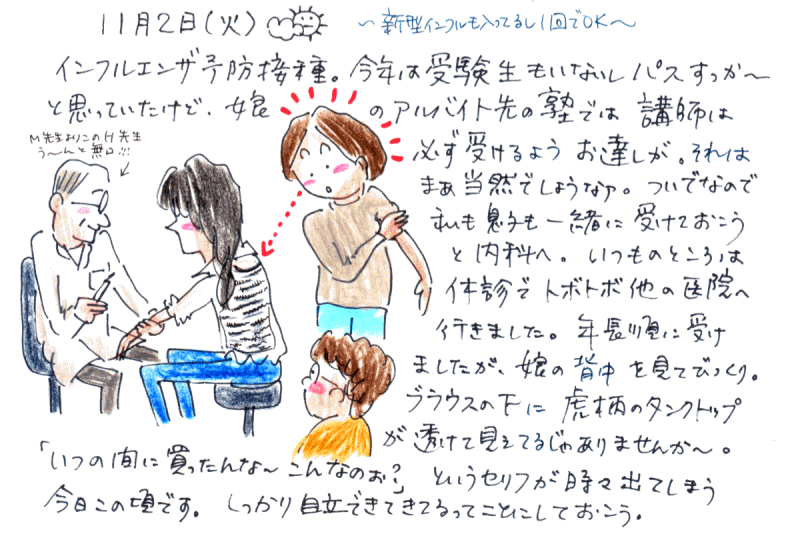 11月2日(火)
～新型インフルも入ってるし1回でOK～
インフルエンザ予防接種。今年は受験生もいないしパスすっか～
と思っていたけど、娘のアルバイト先の塾では 講師は
必ず受けるよう お達しが。それは
まぁ当然でしょうなァ。ついでなので
私も息子も一緒に受けておこう
と内科へ。いつものところは
休診でトボトボ他の医院へ
行きました。年長順に受け
ましたが、娘の背中を見てびっくり。
ブラウスの下に虎柄のタンクトップ
が透けて見えてるじゃありませんか～。
M先生よりこのH先生
う～んと無口…!!
「いつの間に買ったんな～こんなのお?」というセリフが時々出てしまう
今日この頃です。しっかり自立できてきてるってことにしておこう。